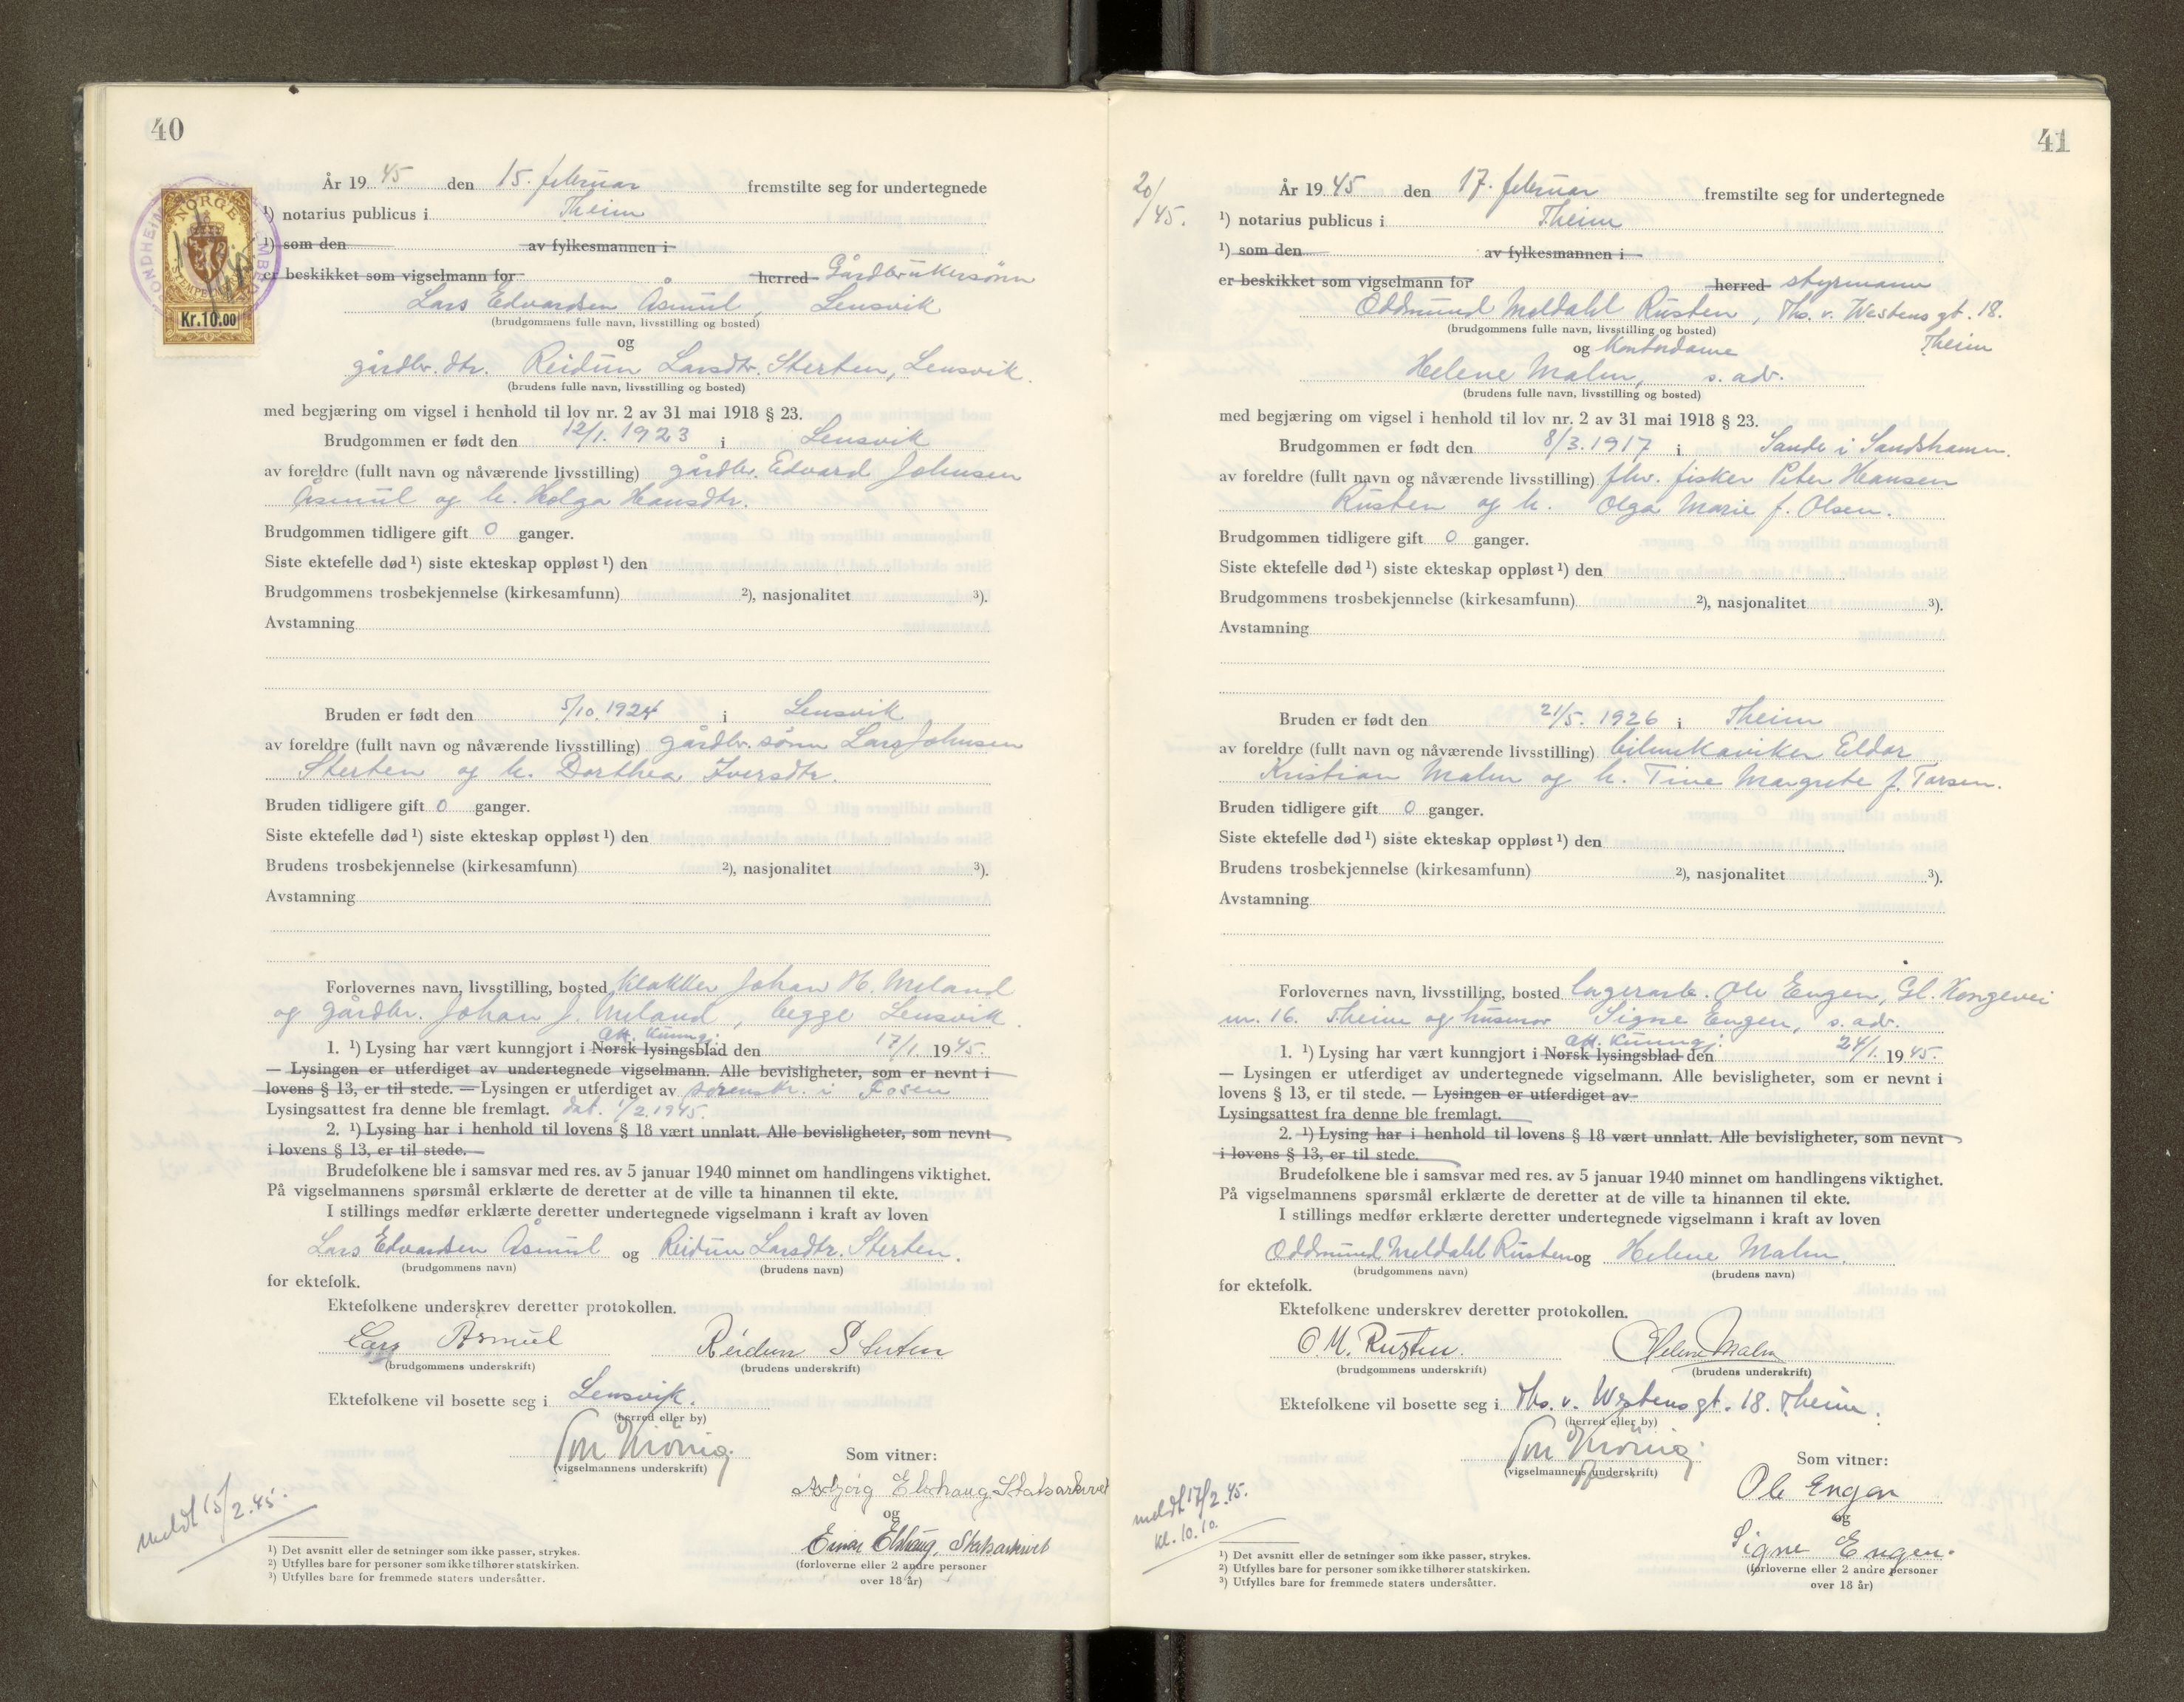 40
NORGE
STEMPEL
Kr.10.00
År 1945 den 15. februar fremstilte seg for undertegnede
¹) notarius publicus i Theim
¹) som den av fylkesmannen i
er beskikket som vigselmann for herred Gårdbrukersønn
Lars Edvardsen Åsmul, Lensvik
(brudgommens fulle navn, livsstilling og bosted)
og
gårdbr. dtr. Reidun Larsdtr. Sterten, Lensvik.
(brudens fulle navn, livsstilling og bosted)
med begjæring om vigsel i henhold til lov nr. 2 av 31 mai 1918 § 23.
Brudgommen er født den 12/1. 1923 i Lensvik
av foreldre (fullt navn og nåværende livsstilling) gårdbr. Edvard Johnsen
Åsmul og h. Helga Hansdtr.
Brudgommen tidligere gift 0 ganger.
Siste ektefelle død ¹) siste ekteskap oppløst ¹) den
Brudgommens trosbekjennelse (kirkesamfunn) ²), nasjonalitet ³).
Avstamning
Bruden er født den 5/10. 1924 i Lensvik
av foreldre (fullt navn og nåværende livsstilling) gårdbr. sønn Lars Johnsen
Sterten og h. Dorthea Iversdtr.
Bruden tidligere gift 0 ganger.
Siste ektefelle død ¹) siste ekteskap oppløst ¹) den
Brudens trosbekjennelse (kirkesamfunn) ²), nasjonalitet ³).
Avstamning
Forlovernes navn, livsstilling, bosted klokker Johan H. Meland
og gårdbr. Johan J. Meland, begge Lensvik.
off. kunng.
1. ¹) Lysing har vært kunngjort i Norsk lysingsblad den 17/1 1945.
— Lysingen er utferdiget av undertegnede vigselmann. Alle bevisligheter, som er nevnt i
lovens § 13, er til stede. — Lysingen er utferdiget av sorenskr. i Fosen
Lysingsattest fra denne ble fremlagt. dat. 1/2. 1945.
2. ¹) Lysing har i henhold til lovens § 18 vært unnlatt. Alle bevisligheter, som nevnt
i lovens § 13, er til stede.
Brudefolkene ble i samsvar med res. av 5 januar 1940 minnet om handlingens viktighet.
På vigselmannens spørsmål erklærte de deretter at de ville ta hinannen til ekte.
I stillings medfør erklærte deretter undertegnede vigselmann i kraft av loven
Lars Edvardsen Åsmul og Reidun Larsdtr. Sterten.
(brudgommens navn) (brudens navn)
for ektefolk.
Ektefolkene underskrev deretter protokollen.
Lars Åsmul Reidun Sterten
(brudgommens underskrift) (brudens underskrift)
Ektefolkene vil bosette seg i Lensvik.
(herred eller by)
(vigselmannens underskrift)
Som vitner:
Statsarkivet
og
Einar Elshaug, Statsarkivet
(forloverne eller 2 andre personer
over 18 år)
meldt 15/2.45.
¹) Det avsnitt eller de setninger som ikke passer, strykes.
²) Utfylles bare for personer som ikke tilhører statskirken.
³) Utfylles bare for fremmede staters undersåtter.
41
20/
/45.
År 1945 den 17. februar fremstilte seg for undertegnede
¹) notarius publicus i Theim
¹) som den av fylkesmannen i
er beskikket som vigselmann for herred styrmann
Oddmund Meldahl Rusten, Ths. v. Westens gt. 18.
(brudgommens fulle navn, livsstilling og bosted) Theim
og kontordame
Helene Malm, s. adr.
(brudens fulle navn, livsstilling og bosted)
med begjæring om vigsel i henhold til lov nr. 2 av 31 mai 1918 § 23.
Brudgommen er født den 8/3. 1917 i Sande i Sandshamn.
av foreldre (fullt navn og nåværende livsstilling) fhv. fisker Peter Hansen
Rusten og h. Olga Marie f. Olsen.
Brudgommen tidligere gift 0 ganger.
Siste ektefelle død ¹) siste ekteskap oppløst ¹) den
Brudgommens trosbekjennelse (kirkesamfunn) ²), nasjonalitet ³).
Avstamning
Bruden er født den 21/5. 1926 i Theim
av foreldre (fullt navn og nåværende livsstilling) bilmekaniker Eldar
Kristian Malm og h. Tine Margrete f. Tarsen.
Bruden tidligere gift 0 ganger.
Siste ektefelle død ¹) siste ekteskap oppløst ¹) den
Brudens trosbekjennelse (kirkesamfunn) ²), nasjonalitet ³).
Avstamning
Forlovernes navn, livsstilling, bosted lagerarb. Ole Engen, Gl. Kongevei
nr. 16. Theim og husmor Signe Engen, s. adr.
off. kunng.
1. ¹) Lysing har vært kunngjort i Norsk lysingsblad den 24/1. 1945.
— Lysingen er utferdiget av undertegnede vigselmann. Alle bevisligheter, som er nevnt i
lovens § 13, er til stede. — Lysingen er utferdiget av
Lysingsattest fra denne ble fremlagt.
2. ¹) Lysing har i henhold til lovens § 18 vært unnlatt. Alle bevisligheter, som nevnt
i lovens § 13, er til stede.
Brudefolkene ble i samsvar med res. av 5 januar 1940 minnet om handlingens viktighet.
På vigselmannens spørsmål erklærte de deretter at de ville ta hinannen til ekte.
I stillings medfør erklærte deretter undertegnede vigselmann i kraft av loven
Oddmund Meldahl Rusten og Helene Malm.
(brudgommens navn) (brudens navn)
for ektefolk.
Ektefolkene underskrev deretter protokollen.
O. M. Rusten. Helene Malm
(brudgommens underskrift) (brudens underskrift)
Ektefolkene vil bosette seg i Ths. v. Westens gt. 18. Theim.
(herred eller by)
(vigselmannens underskrift)
Som vitner:
Ole Engen
og
Signe Engen.
(forloverne eller 2 andre personer
over 18 år)
meldt 17/2.45.
kl. 10.10.
¹) Det avsnitt eller de setninger som ikke passer, strykes.
²) Utfylles bare for personer som ikke tilhører statskirken.
³) Utfylles bare for fremmede staters undersåtter.